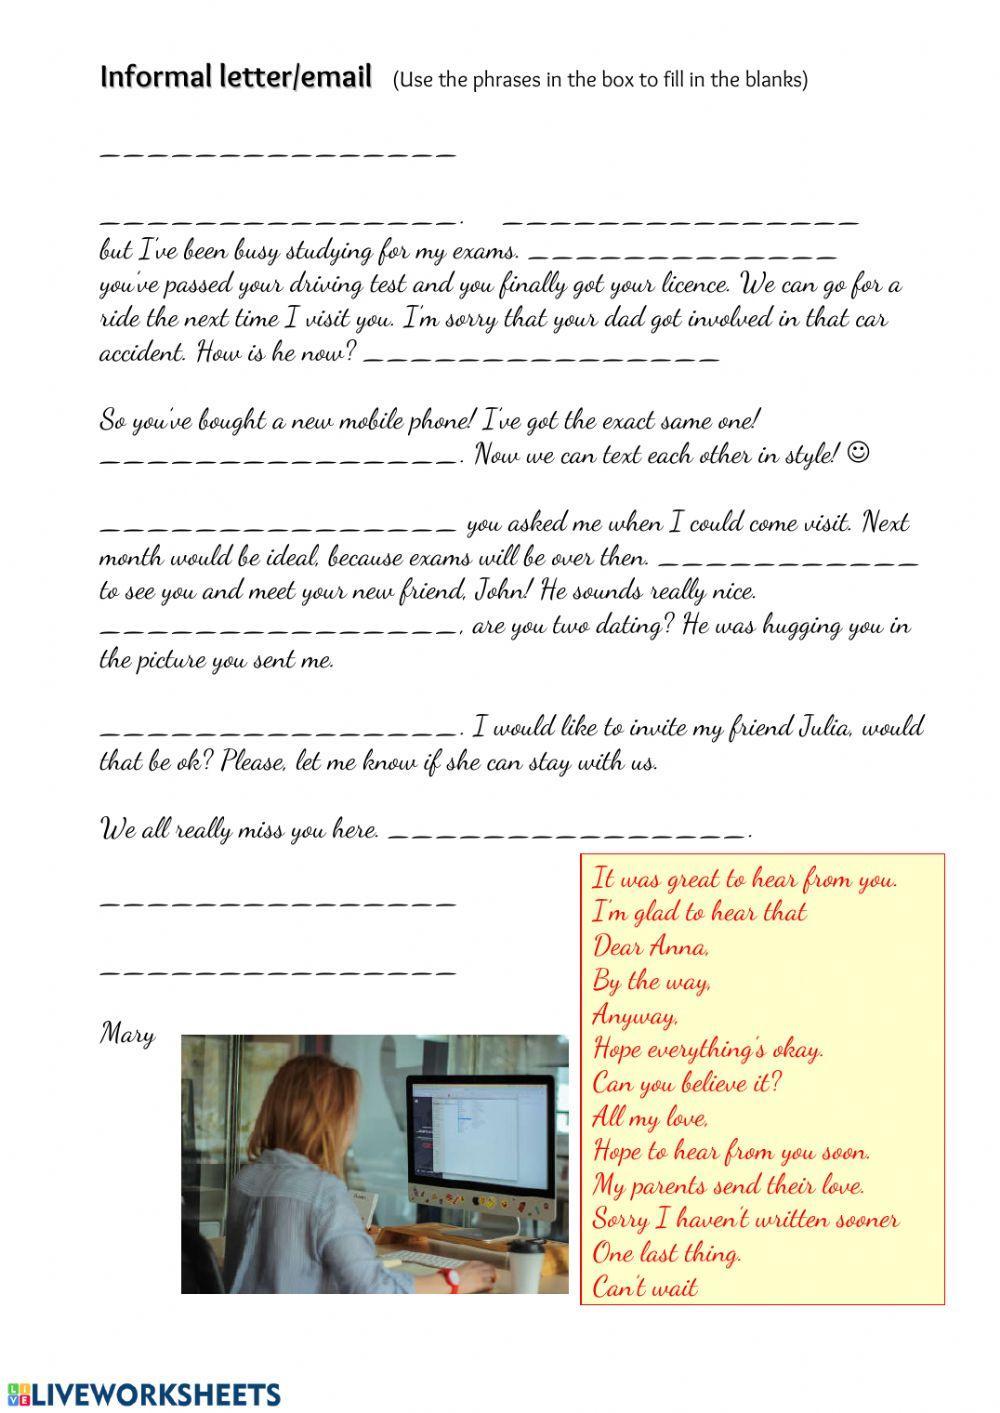 Informal letter/email (Use the phrases in the box to fill in the blanks)
_______________
_______________. _______________
but I've been busy studying for my exams. _____________
you've passed your driving test and you finally got your licence. We can go for a
ride the next time I visit you. I'm sorry that your dad got involved in that car
accident. How is he now? _______________
So you've bought a new mobile phone! I've got the exact same one!
_______________. Now we can text each other in style! ☺
_______________ you asked me when I could come visit. Next
month would be ideal, because exams will be over then. ___________
to see you and meet your new friend, John! He sounds really nice.
_______________, are you two dating? He was hugging you in
the picture you sent me.
_______________. I would like to invite my friend Julia, would
that be ok? Please, let me know if she can stay with us.
We all really miss you here. _______________.
_______________
_______________
Mary
It was great to hear from you.
I'm glad to hear that
Dear Anna,
By the way,
Anyway,
Hope everything's okay.
Can you believe it?
All my love,
Hope to hear from you soon.
My parents send their love.
Sorry I haven't written sooner
One last thing.
Can't wait
LIVEWORKSHEETS